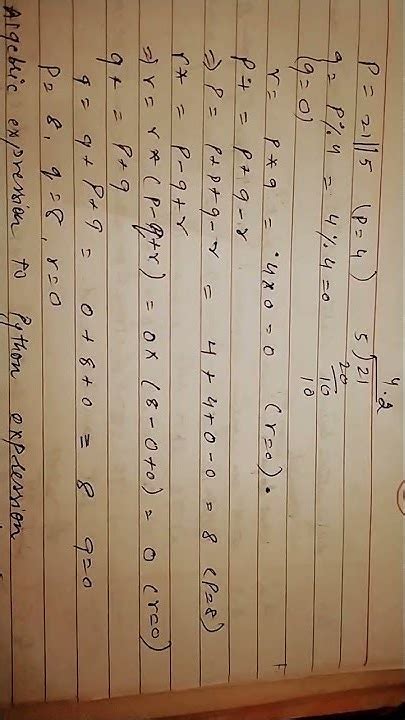 P = 21//5 (p=4)
q = p%4 = 4%4=0
(q=0)
4.2
5)21
20
10
10
r = p*q = 4x0 = 0 (r=0).
p+ = p+q-r
=) p = p+p+q-r = 4+4+0-0 = 8 (p=8)
r* = p-q+r
=) r = r*(p-q+r) = 0x(8-0+0) = 0 (r=0)
q+ = p+q
q = q+p+q = 0+8+0 = 8 q=0
p=8, q=8, r=0
Algebric expression to Python expression